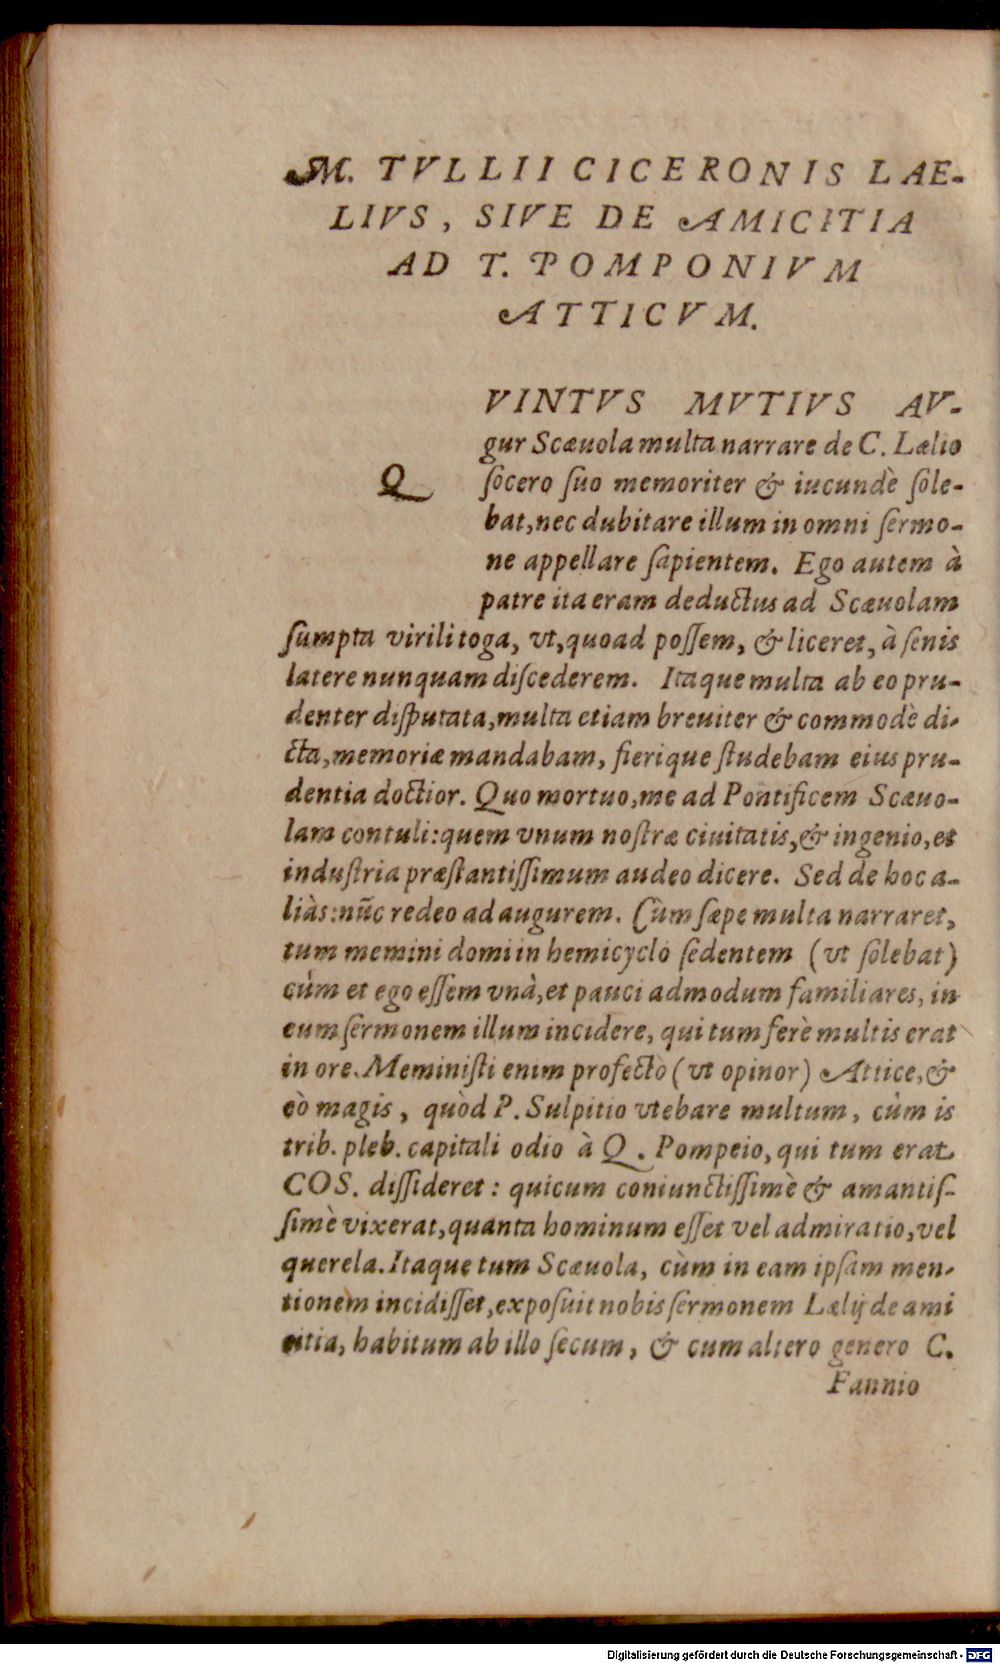 M. TVLLII CICERONIS LAE-
LIVS, SIVE DE AMICITIA
AD T. POMPONIVM
ATTICVM.
QVINTVS MVTIVS AV-
gur Scæuola multa narrare de C. Lælio
ſocero ſuo memoriter & iucundè ſole-
bat, nec dubitare illum in omni ſermo-
ne appellare ſapientem. Ego autem à
patre ita eram deductus ad Scæuolam
ſumpta virili toga, vt, quoad poſſem, & liceret, à ſenis
latere nunquam diſcederem. Itaque multa ab eo pru-
denter diſputata, multa etiam breuiter & commodè di-
cta, memoriæ mandabam, fierique ſtudebam eius pru-
dentia doctior. Quo mortuo, me ad Pontificem Scæuo-
lam contuli: quem vnum noſtræ ciuitatis, & ingenio, et
induſtria præſtantiſſimum audeo dicere. Sed de hoc a-
liàs: nūc redeo ad augurem. Cùm ſæpe multa narraret,
tum memini domi in hemicyclo ſedentem (vt ſolebat)
cùm et ego eſſem vnà, et pauci admodum familiares, in
eum ſermonem illum incidere, qui tum ferè multis erat
in ore. Meminiſti enim profectò (vt opinor) Attice, &
eò magis, quòd P. Sulpitio vtebare multum, cùm is
trib. pleb. capitali odio à Q. Pompeio, qui tum erat
COS. diſſideret: quicum coniunctiſſimè & amantiſ-
ſimè vixerat, quanta hominum eſſet vel admiratio, vel
querela. Itaque tum Scæuola, cùm in eam ipſam men-
tionem incidiſſet, expoſuit nobis ſermonem Lælij de ami
citia, habitum ab illo ſecum, & cum altero genero C.
Fannio
Digitalisierung gefördert durch die Deutsche Forschungsgemeinschaft - DFG